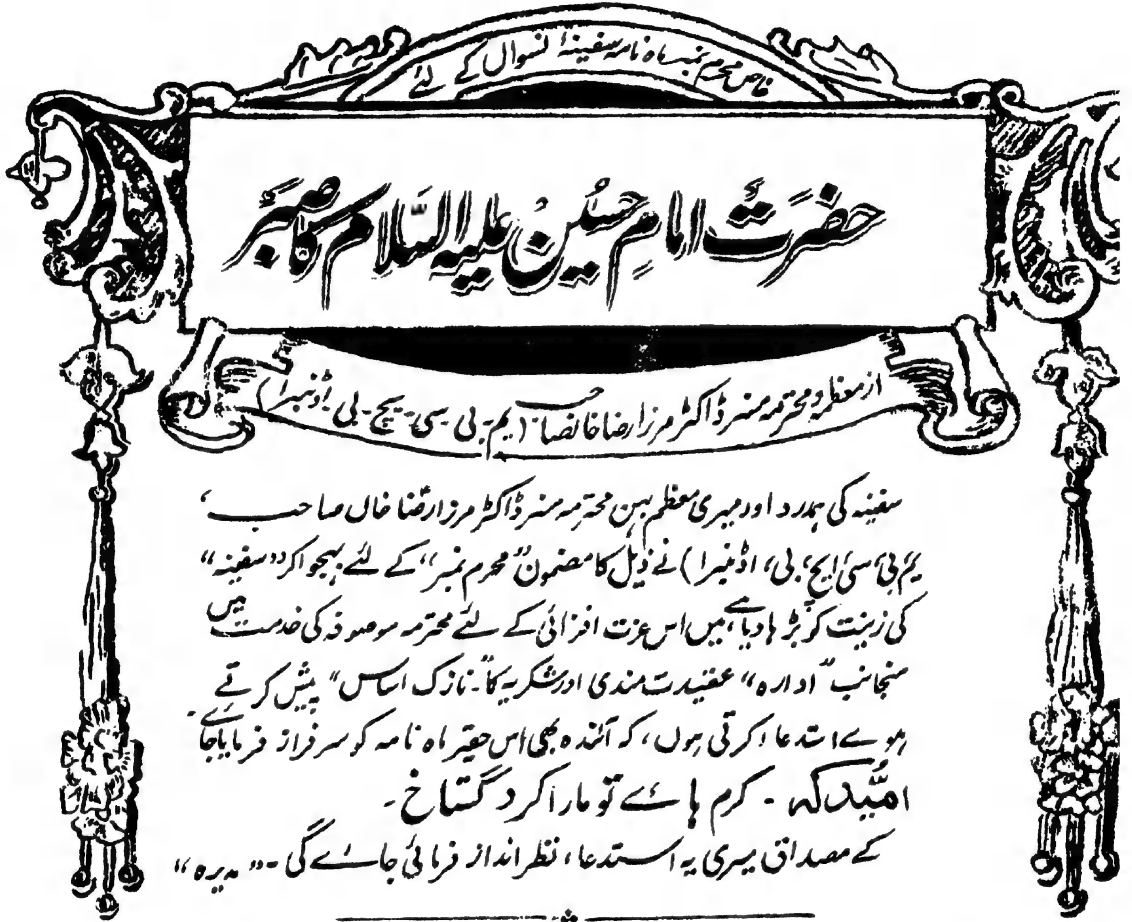 خاص محرم نمبر ماہ نامہ سفینۂ نسواں کے لئے
حضرت امام حسین علیہ السلام کا صبر
از معظمہ و محترمہ مسز ڈاکٹر مرزا رضا خانصاحب (یم۔ بی۔ سی۔ یچ۔ بی۔ اڈنبرا)
سفینہ کی ہمدرد اور میری معظم بہن محترمہ مسز ڈاکٹر مرزا رضا خاں صاحب،
یم بی، سی ایچ، بی، اڈنبرا) نے ذیل کا مضمون "محرم نمبر" کے لئے بھجوا کر "سفینہ"
کی زینت کو بڑہا دیا ہے، میں اس عزت افزائی کے لئے محترمہ موصوفہ کی خدمت میں
منجانب "ادارہ" عقیدت مندی اور شکریہ کا "نازک اساس" پیش کرتے
ہوے استدعا کرتی ہوں، کہ آئندہ بھی اس حقیر ماہ نامہ کو سرفراز فرمایا جائے۔
امید کہ ۔ کرم ہائے تو مارا کرد گستاخ ۔
کے مصداق میری یہ استدعا، نظر انداز فرمائی جائے گی ۔ "مدیرہ"